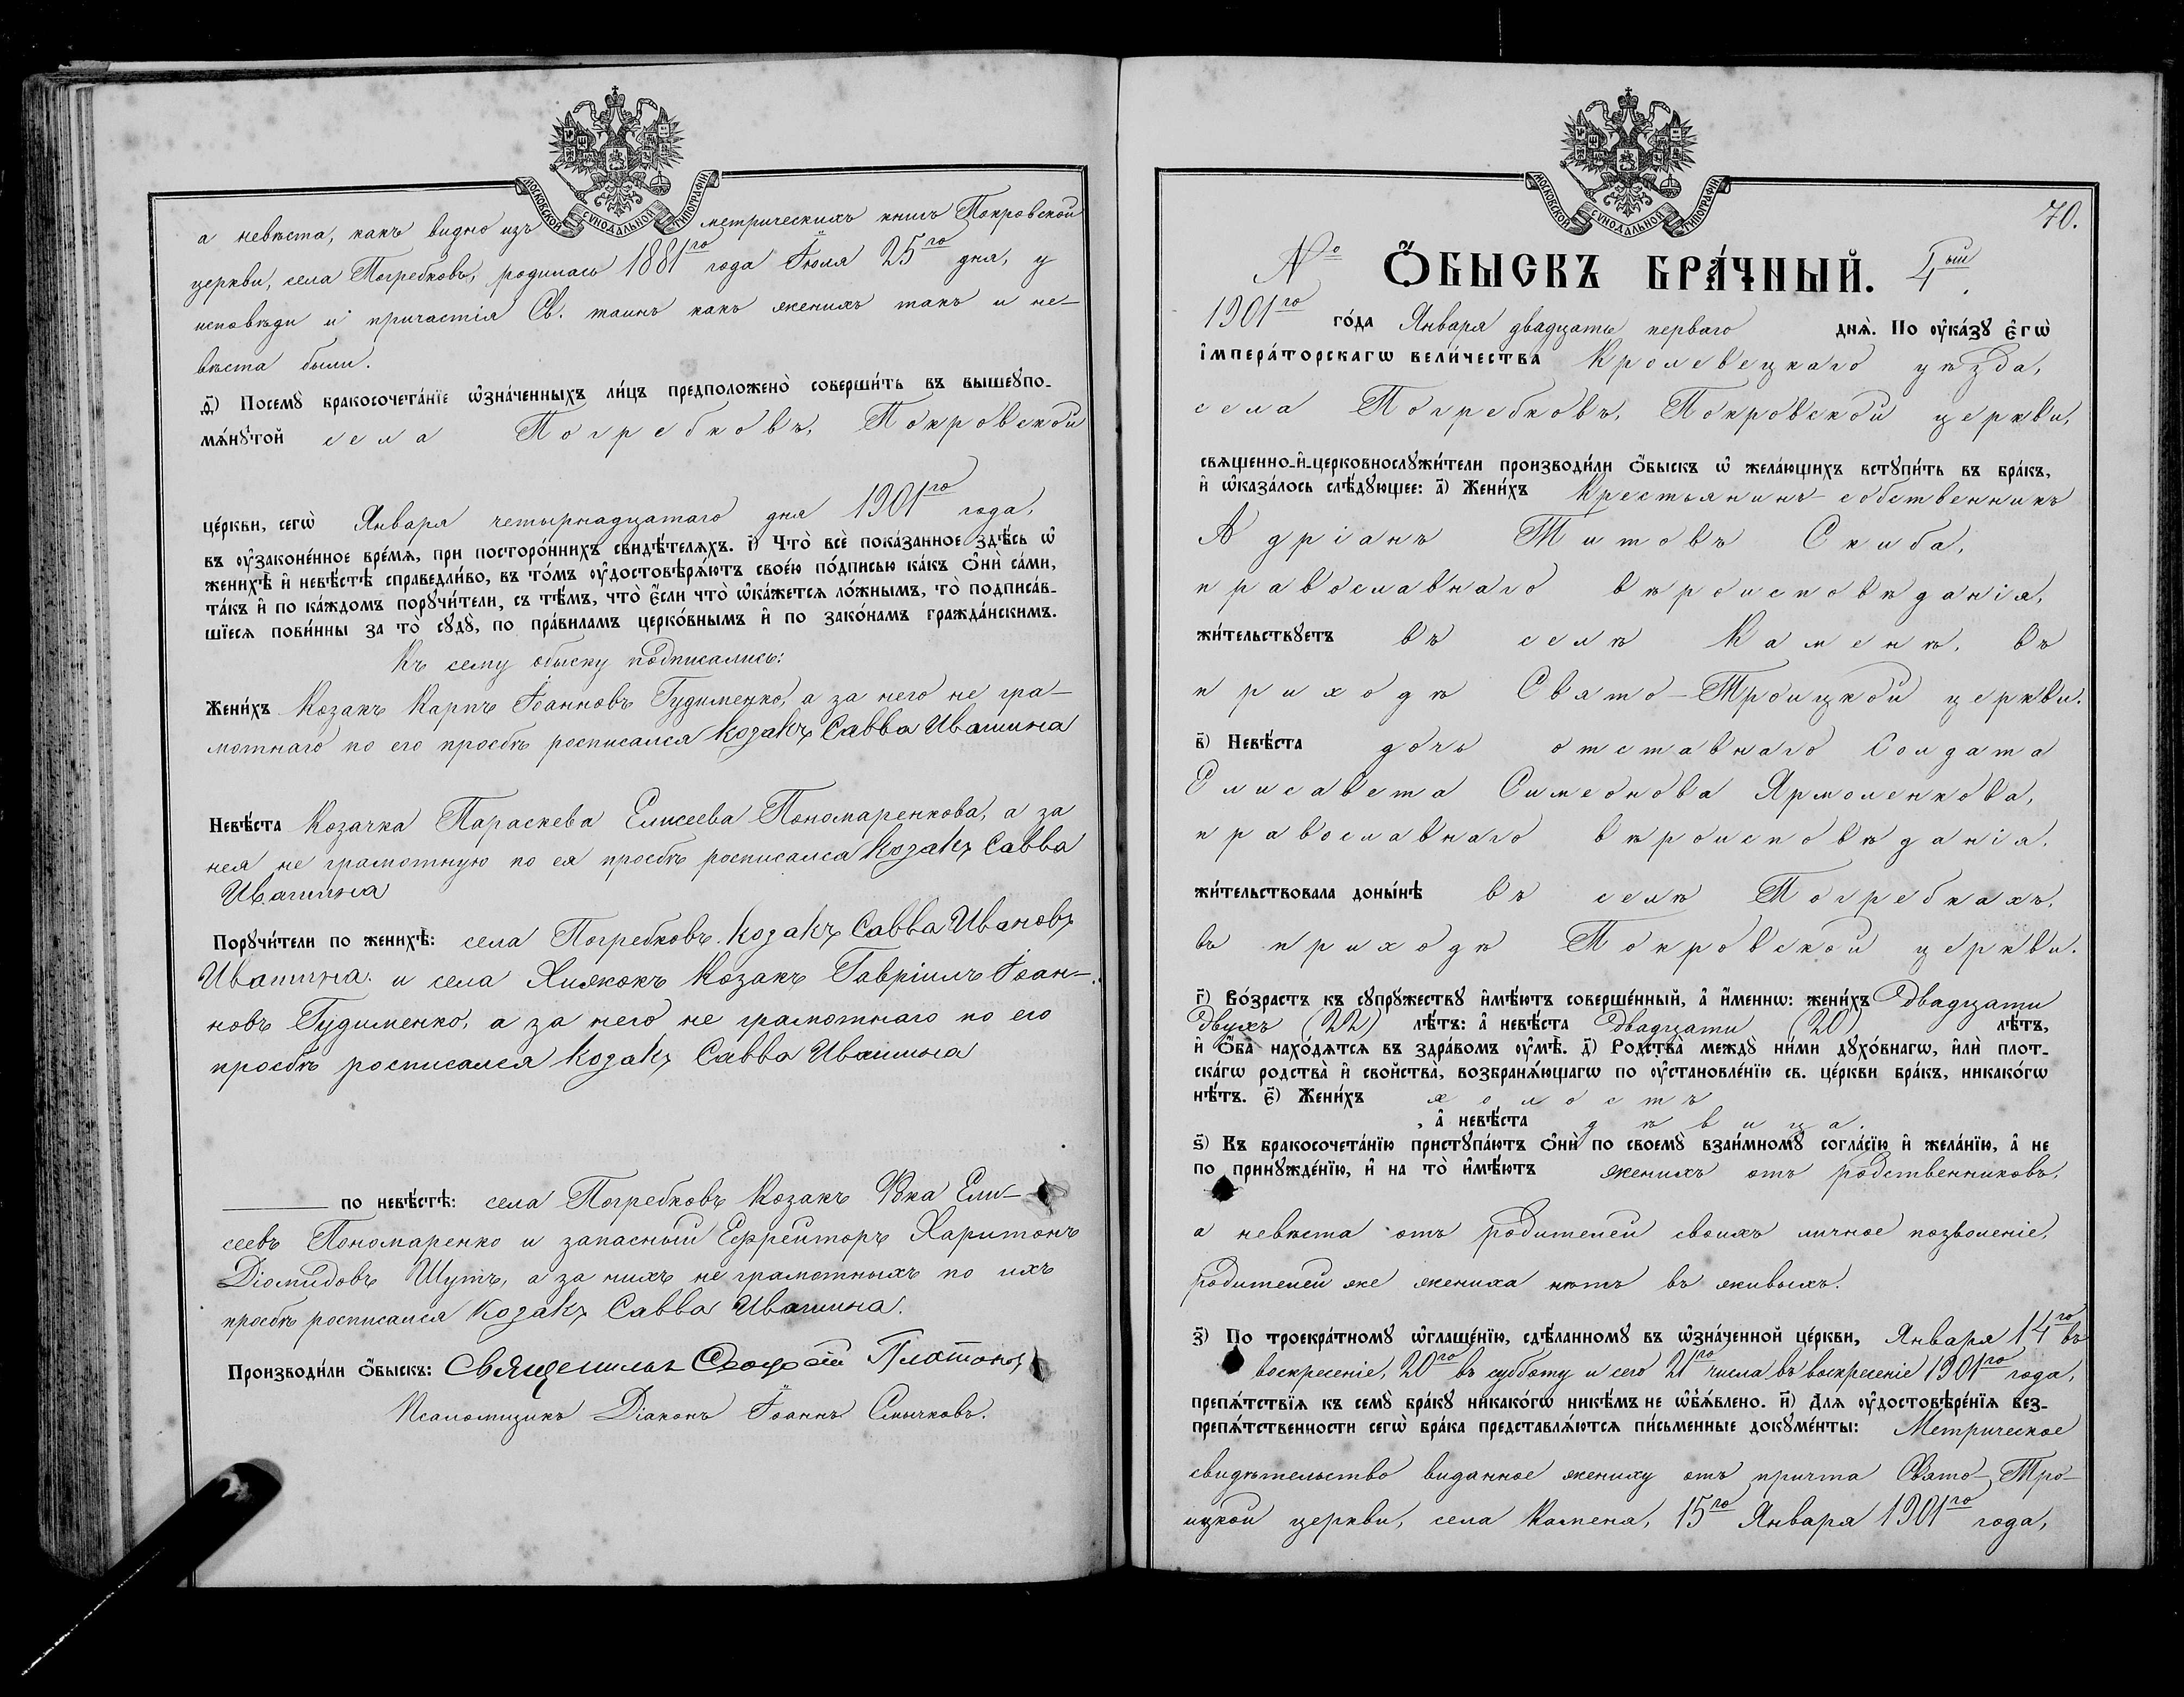 МОСКОВСКОЙ СѴНОДАЛЬНОЙ ТИПОГРАФІИ
а невѣста, какъ видно изъ метрическихъ книгъ Покровской
церкви, села Погребковъ, родилась 1881го года Іюля 25го дня, у
исповѣди и причастія Св. таинъ какъ женихъ такъ и не-
вѣста были.
д҃) Посемꙋ бракосочета́нїе ѡ҆зна́ченныхъ ли́цъ предположено̀ соверши́ть въ вышеꙋпо-
мѧ́нꙋтой села Погребковъ, Покровской
це́ркви, сегѡ̀ Января четырнадцатаго дня 1901го года,
въ ᲂу҆законе́нное вре́мѧ, при посторо́ннихъ свидѣ́телѧхъ. і҃) Что̀ всѐ пока́занное здѣ́сь ѡ҆
женихѣ̀ и҆ невѣ́стѣ справедли́во, въ то́мъ ᲂу҆достовѣрѧ́ютъ свое́ю по́дписью ка́къ ѻ҆нѝ са́ми,
та́къ и҆ по ка́ждомъ порꙋчи́тели, съ тѣ́мъ, что̀ є҆́сли что̀ ѡ҆ка́жетсѧ ло́жнымъ, то̀ подписа́в-
шїесѧ пови́нны за то̀ сꙋдꙋ̀, по пра́виламъ церко́внымъ и҆ по зако́намъ гражда́нскимъ.
Къ сему обыску подписались:
Жени́хъ Козакъ Карпъ Іоанновъ Гудименко, а за него не гра-
мотнаго по его просьбѣ росписался Козакъ Савва Ивашина
Невѣ́ста Козачка Параскева Елисеева Пономаренкова, а за
нея не грамотную по ея просьбѣ росписался Козакъ Савва
Ивашина
Порꙋчи́тели по женихѣ̀: села Погребковъ Козакъ Савва Ивановъ
Ивашина. и села Хижокъ Козакъ Гавріилъ Іоан-
новъ Гудименко, а за него не грамотнаго по его
просьбѣ росписался Козакъ Савва Ивашина
по невѣ́стѣ: села Погребковъ Козакъ Ѳка Ели-
сеевъ Пономаренко и запасный Ефрейторъ Харитонъ
Діомидовъ Шутъ, а за нихъ не грамотныхъ по ихъ
просьбѣ росписался Козакъ Савва Ивашина.
Производи́ли ѻ҆́быскъ: Священникъ Платоновъ
Псаломщикъ Діаконъ Іоаннъ Смычковъ.
МОСКОВСКОЙ СѴНОДАЛЬНОЙ ТИПОГРАФІИ
70.
№ Ѻ҆́БЫСКЪ БРА́ЧНЫЙ. 4ый
1901го го́да Января двадцать перваго днѧ̀. По ᲂу҆ка́зꙋ є҆гѡ̀
і҆мпера́торскагѡ вели́чества Кролевецкаго уѣзда,
села Погребковъ, Покровской церкви,
свѧщенно-и҆-церковнослꙋжи́тели производи́ли ѻ҆́быскъ ѡ҆ жела́ющихъ встꙋпи́ть въ бра́къ,
и҆ ѡ҆каза́лось слѣ́дꙋющее: а҃) Жени́хъ Крестьянинъ-собственникъ
Адріанъ Титовъ Скиба,
православнаго вѣроисповѣданія,
жи́тельствꙋетъ въ селѣ Каменѣ, въ
приходѣ Свято-Троицкой церкви.
в҃) Невѣ́ста дочь отставнаго Солдата
Елисавета Симеонова Ярмоленкова,
православнаго вѣроисповѣданія,
жи́тельствовала доны́нѣ въ селѣ Погребкахъ,
въ приходѣ Покровской церкви.
г҃) Во́зрастъ къ сꙋпрꙋ́жествꙋ и҆мѣ́ютъ соверше́нный, а҆ и҆́меннѡ: жени́хъ двадцати
двухъ (22) лѣ́тъ: а҆ невѣ́ста двадцати (20) лѣ́тъ,
и҆ ѻ҆́ба нахо́дѧтсѧ въ здра́вомъ ᲂу҆мѣ̀. д҃) Родства̀ междꙋ̀ ни́ми дꙋхо́внагѡ, и҆лѝ плот-
ска́гѡ родства̀ и҆ свойства̀, возбранѧ́ющагѡ по ᲂу҆становле́нїю св. це́ркви бра́къ, никако́гѡ
нѣ́тъ. є҃) Жени́хъ холостъ
, а҆ невѣ́ста дѣвица.
ѕ҃) Въ бракосочета́нїю пристꙋпа́ютъ ѻ҆нѝ по своемꙋ̀ взаи́мномꙋ согла́сїю и҆ жела́нїю, а҆ не
по принꙋжде́нїю, и҆ на то̀ и҆мѣ́ютъ женихъ отъ родственниковъ,
а невѣста отъ родителей своихъ личное позволеніе,
родителей же жениха нѣтъ въ живыхъ.
з҃) По троекра́тномꙋ ѡ҆глаше́нїю, сдѣ́ланномꙋ въ ѡ҆зна́ченной це́ркви, Января 14го въ
воскресеніе, 20го въ субботу и сего 21го числа въ воскресеніе 1901го года,
препѧ́тствїѧ къ семꙋ̀ бра́кꙋ никако́гѡ никѣ́мъ не ѡ҆б̾ѧ́влено. и҃) Длѧ ᲂу҆достовѣре́нїѧ без-
препѧ́тственности сегѡ̀ бра́ка представлѧ́ютсѧ пи́сьменные докꙋме́нты: Метрическое
свидѣтельство виданное жениху отъ причта Свято-Тро-
ицкой церкви, села Камена, 15го Января 1901го года,